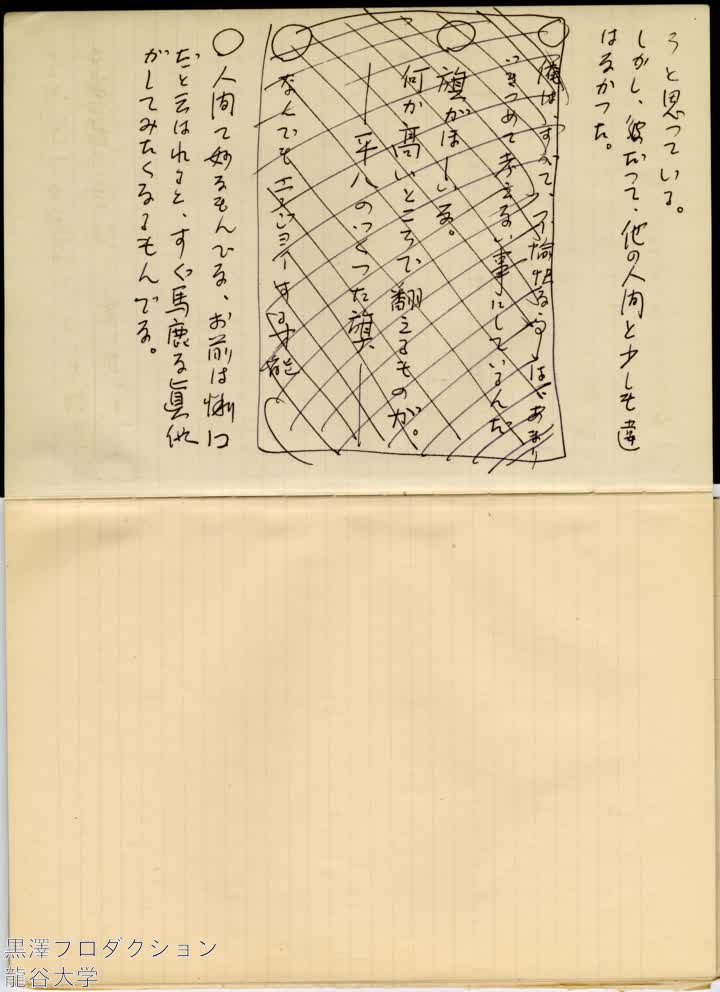 うと思つている。
しかし、彼だつて、他の人間と少しも違
はなかつた。
○俺は、すべて、不愉快な事はであまり
つきつめて考えない事にしているんだ
○旗がほしいな。
何か高いところで翻えるものが。
―平八のつくつた旗―
○なんでもエンジヨイする才能
○人間て妙なもんでな、お前は悧口
だと云はれると、すぐ馬鹿な真似
がしてみたくなるもんでな。
黒澤プロダクション
龍谷大学